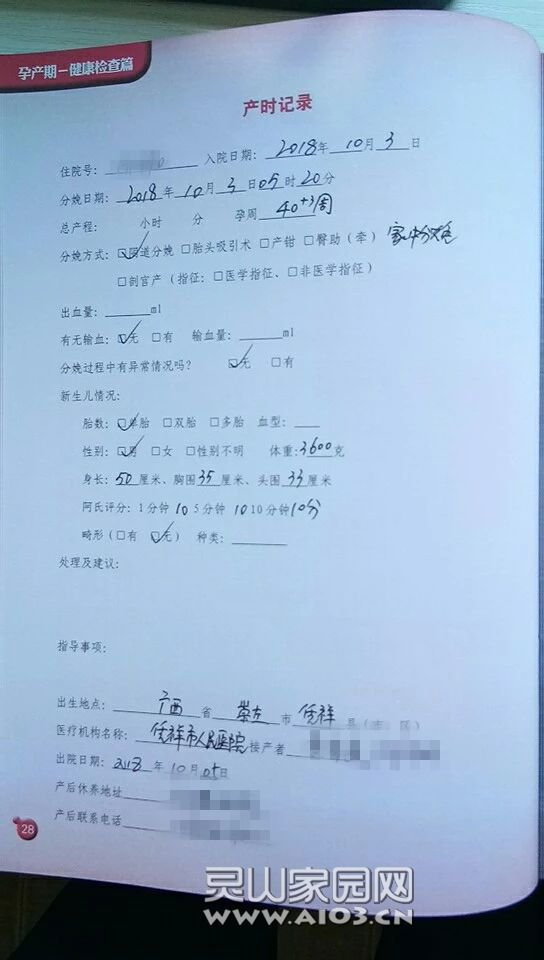 孕产期－健康检查篇
产时记录
住院号: 入院日期: 2018年 10月 3日
分娩日期: 2018年 10月 3日 05时 20分
总产程: 小时 分 孕周 40+3周
分娩方式: ☑阴道分娩 □胎头吸引术 □产钳 □臀助(牵) 家中分娩
□剖宫产 (指征: □医学指征、□非医学指征)
出血量: ml
有无输血: ☑无 □有 输血量: ml
分娩过程中有异常情况吗? ☑无 □有
新生儿情况:
胎数: ☑单胎 □双胎 □多胎 血型:
性别: ☑男 □女 □性别不明 体重: 3600克
身长: 50厘米、胸围35厘米、头围33厘米
阿氏评分: 1分钟 10 5分钟 10 10分钟 10分
畸形(□有 ☑无) 种类:
处理及建议:
指导事项:
出生地点: 广西省 崇左市 凭祥县(市、区)
医疗机构名称: 凭祥市人民医院 接产者
出院日期: 2018年 10月 05日
产后休养地址
产后联系电话
28
灵山家园网
WWW.A103.CN